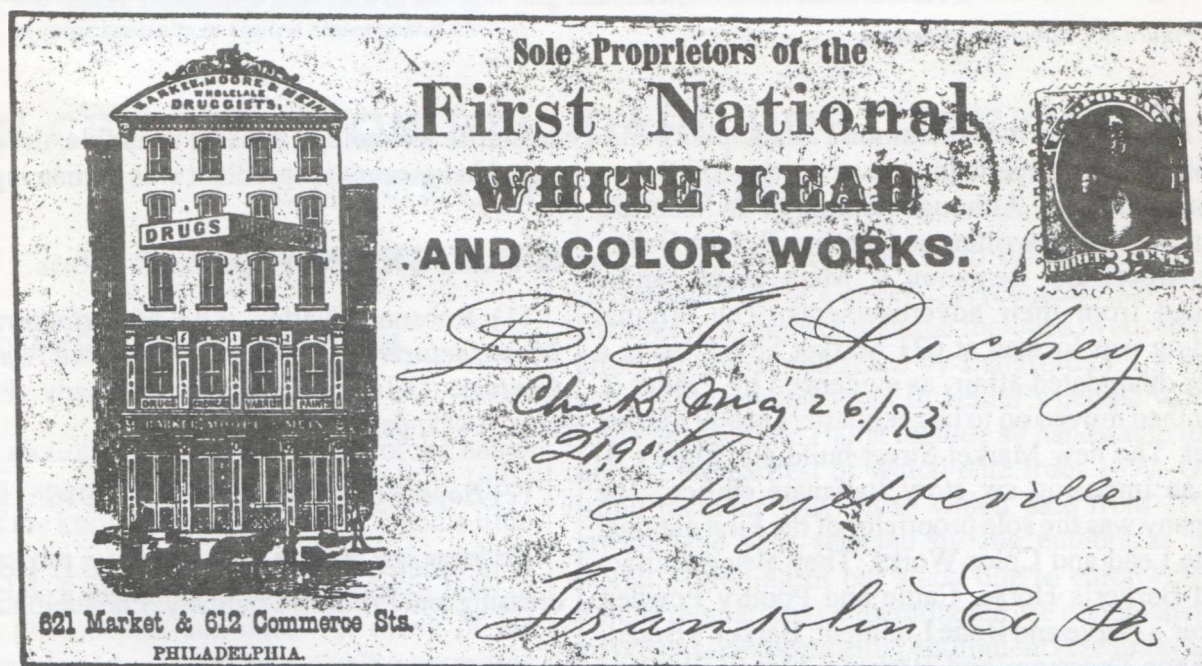 BARKER, MOORE & MEIN
WHOLELALE
DRUGGISTS,
DRUGS
BARKER MOORE & MEIN
621 Market & 612 Commerce Sts.
PHILADELPHIA.
Sole Proprietors of the
First National
WHITE LEAD
AND COLOR WORKS.
U.S. POSTAGE
THREE 3 CENTS
D F Richey
Check May 26/73
21,90
Fayetteville
Franklin Co Pa